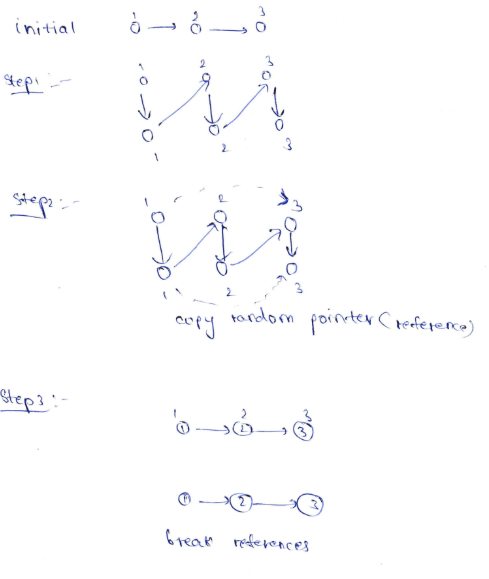 1 2 3
initial
Step1 :-
1 2 3
1 2 3
Step2 :-
1 2 3
1 2 3
copy random pointer (reference)
Step3 :-
1 2 3
1 2 3
1 2 3
break references